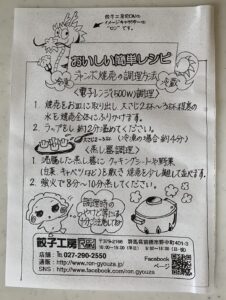 餃子工房RONの
イメージキャラクター
"ロン"です。
おいしい簡単レシピ
冷凍
冷蔵
ジャンボ焼売の調理方法
<電子レンジ(500W)調理>
1. 焼売をお皿に取り出し 大さじ2杯~3杯程度の
水を焼売全体にふりかけます。
2. ラップをし 約2分温めてください。
(冷凍の場合約4分)
<蒸し器調理>
1. 沸騰した蒸し器に クッキングシートか野菜
(白菜、キャベツなど)を敷き 焼売を少し離して並べます。
2. 強火で8分~10分蒸してください。
調理時の
やけど等には
十分ご注意して下さい
餃子工房
〒379-2166 群馬県前橋市野中町401-3
店舗: ℡.027-290-2550
通販: http://www.ron-gyouza.jp/
SNS: http://www.facebook.com/ron.gyouza
Facebook
ページ